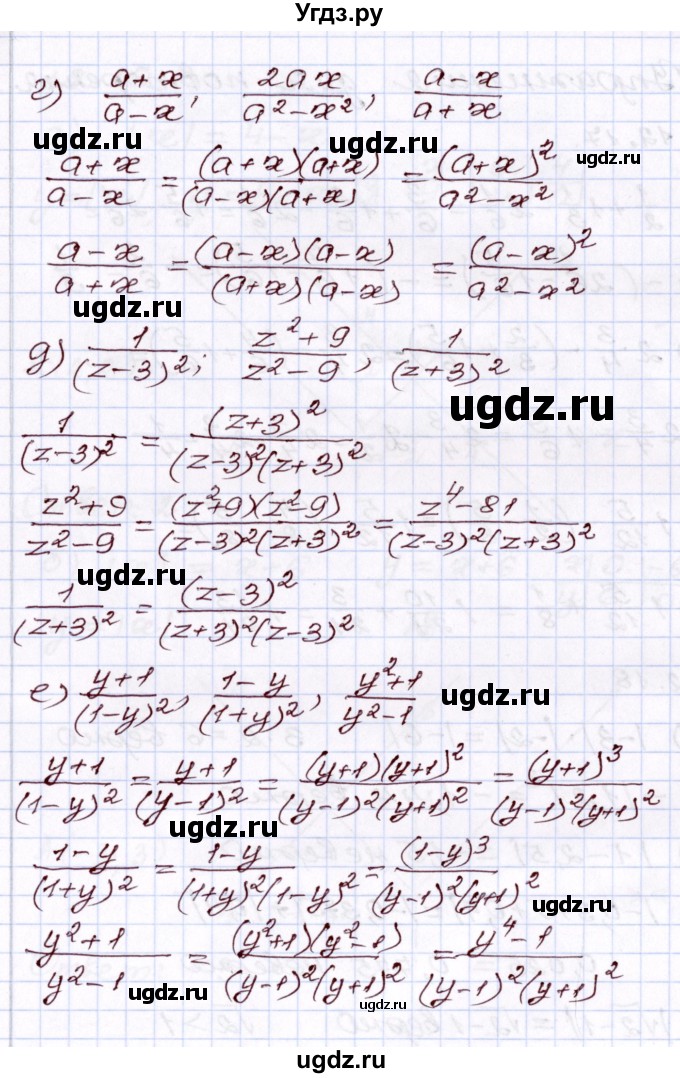 Угдз.ру
г) (a+x)/(a-x), 2ax/(a²-x²), (a-x)/(a+x)
ugdz.ru
ugdz.ru
(a+x)/(a-x) = (a+x)(a+x)/(a-x)(a+x) = (a+x)²/(a²-x²)
(a-x)/(a+x) = (a-x)(a-x)/(a+x)(a-x) = (a-x)²/(a²-x²)
ugdz.ru
д) 1/(z-3)²; (z²+9)/(z²-9), 1/(z+3)²
ugdz.ru
1/(z-3)² = (z+3)²/(z-3)²(z+3)²
(z²+9)/(z²-9) = (z²+9)(z²-9)/(z-3)²(z+3)² = (z⁴-81)/(z-3)²(z+3)²
ugdz.ru
1/(z+3)² = (z-3)²/(z+3)²(z-3)²
е) (y+1)/(1-y)², (1-y)/(1+y)², (y²+1)/(y²-1)
ugdz.ru
(y+1)/(1-y)² = (y+1)/(y-1)² = (y+1)(y+1)²/(y-1)²(y+1)² = (y+1)³/(y-1)²(y+1)²
ugdz.ru
(1-y)/(1+y)² = (1-y)/(1+y)²(1-y)² = (1-y)³/(y-1)²(y+1)²
ugdz.ru
(y²+1)/(y²-1) = (y²+1)(y²-1)/(y-1)²(y+1)² = (y⁴-1)/(y-1)²(y+1)²
ugdz.ru
ugdz.ru
ugdz.ru